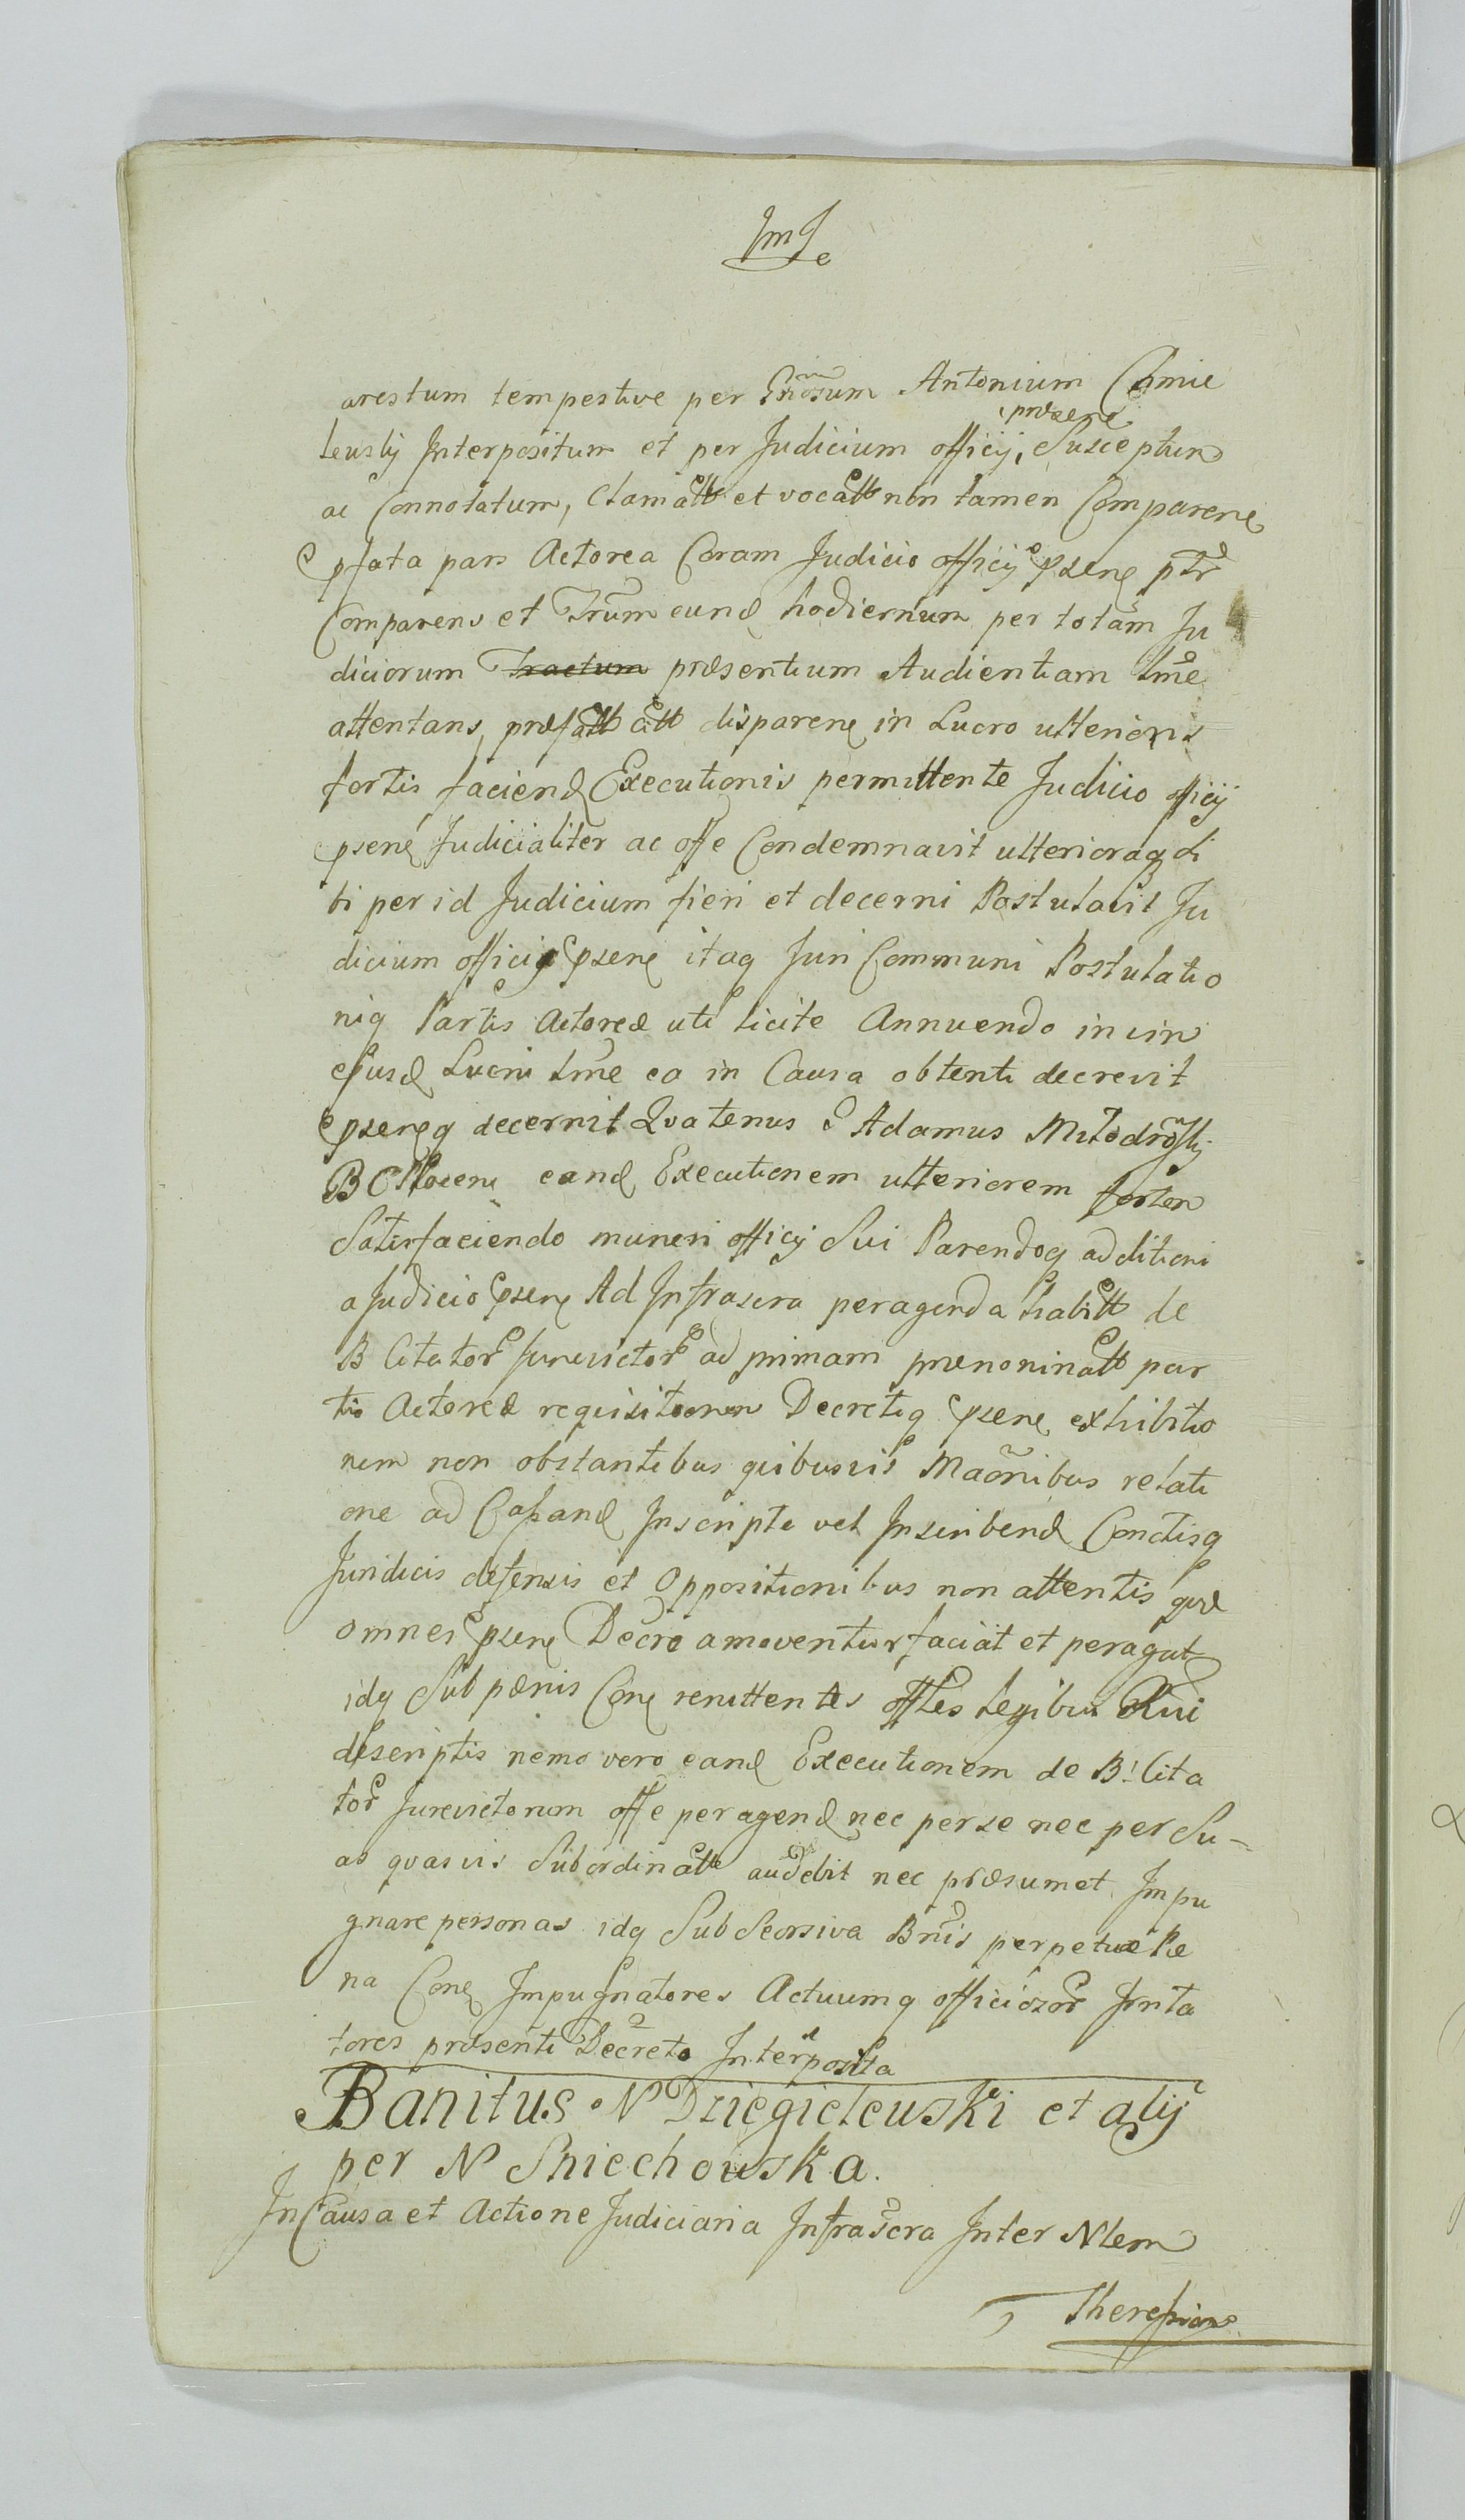 arestum tempestive per Gnosum Antonium Chmie
leuskj Interpositum et per Judicium officij, præsens Susceptum
ac Connotatum, Clamatt et vocatt non tamen Comparen
pfata pars Actorea Coram Judicio officij psen ptr
Comparens et Trum eund hodiernum per totam Ju
diciorum Tractum præsentium Audientiam tme
attentans, præfatt citt disparen in Lucro ulterioris
fortis faciend Executionis permittente Judicio officij
psen Judicialiter ac offe Condemnavit ulterioraq si
bi per id Judicium fieri et decerni Postulavit Ju
dicium officij psen itaq Juri Communi Postulatio
niq Partis Actoreæ uti licite Annuendo in vim
ejusd Lucri tme ea in Causa obtenti decrevit
psenq decernit Quatenus Adamus Młodro
eand Executionem ulteriorem fortem
Satisfaciendo muneri officij Sui Parendoq additioni
a Judicio psen Ad Infrascra peragenda habitt de
B Citator Jurevictor ad primam prænominatt par
tis Actoreæ requisitionem Decretiq psen exhibitio
nem non obstantibus quibusvis Maonibus relati
one ad Cassand Inscriptis vel Inscribend Conctisq
Juridicis defensis et Oppositionibus non attentis quæ
omnes psen Decro amoventur faciat et peragat
idq Sub pænis Con renittentes legibus Rni
descriptis nemo vero eand Executionem de B. Cita
tor Jurevictorum offe peragend nec per se nec per Su-
as quasvis Subordinatt audebit nec præsumet Impu
gnare personas idq Sub Seorsiva Bnis perpetuæ Pæ
na Con Impugnatores Actuumq officiozor Irrita
tores præsenti Decreto Interposita
Banitus N Dziegielewski et alij
per N Sniechowska.
In Causa et Actione Judiciaria Infrascra Inter Nlem